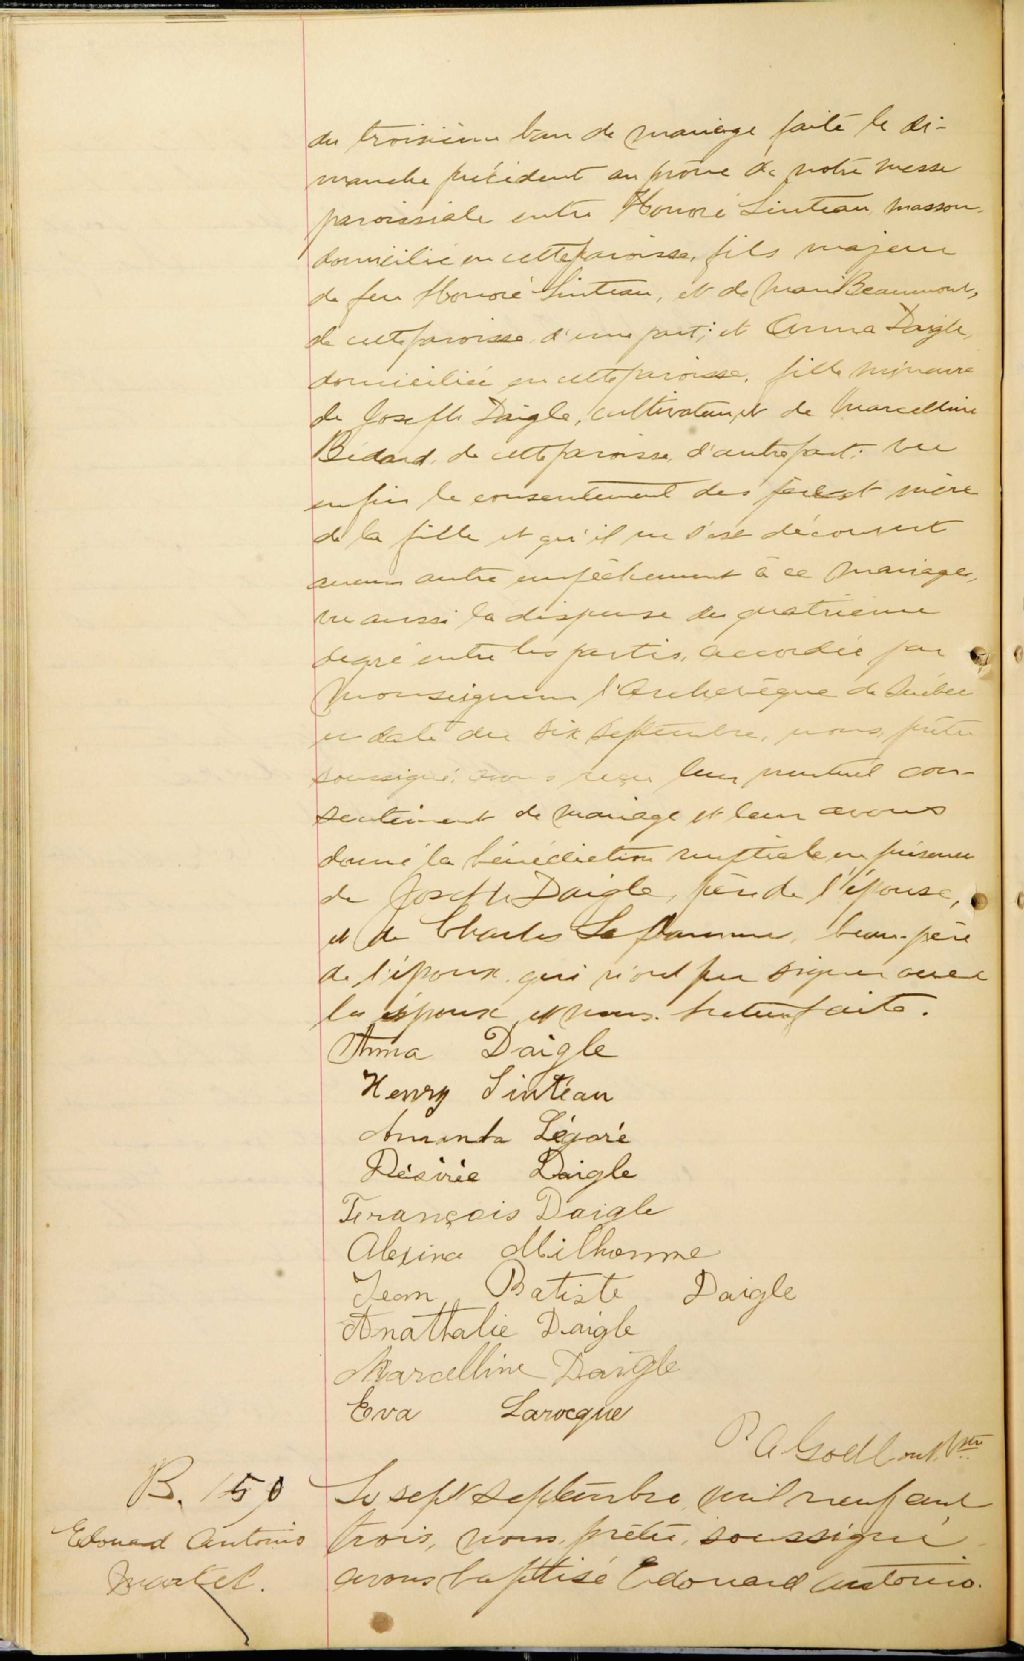 du troisième ban de mariage faite le di-
manche précédent au prône de notre messe
paroissiale entre Honoré Sinteau, masson,
domicilié en cette paroisse, fils majeur
de feu Honoré Sinteau, et de Marie Beaumont,
de cette paroisse, d'une part; et Anna Daigle,
domiciliée en cette paroisse, fille mineure
de Joseph Daigle, cultivateur, et de Marcelline
Bédard, de cette paroisse, d'autre part: vu
enfin le consentement des père et mère
de la fille et qu'il ne s'est découvert
aucun autre empêchement à ce mariage,
vu aussi la dispense du quatrième
degré entre les parties, accordée par
Monseigneur l'Archevêque de Québec
en date du six septembre, nous, prêtre
soussigné, avons reçu leur mutuel con-
sentement de mariage et leur avons
donné la bénédiction nuptiale en présence
de Joseph Daigle, père de l'épouse,
et de Charles Laflamme, beau-père
de l'époux, qui n'ont pu signer avec
les époux et nous. Lecture faite.
Anna Daigle
Henry Sinteau
Amanda Légaré
Désirée Daigle
François Daigle
Alexina Milhomme
Jean Batiste Daigle
Anathalie Daigle
Marcelline Daigle
Eva Larocque
P. A. Godbout Ptre
B. 150
Edouard Antonio
Martel.
Le sept septembre, mil neuf cent
trois, nous, prêtre, soussigné
avons baptisé Edouard Antonio.